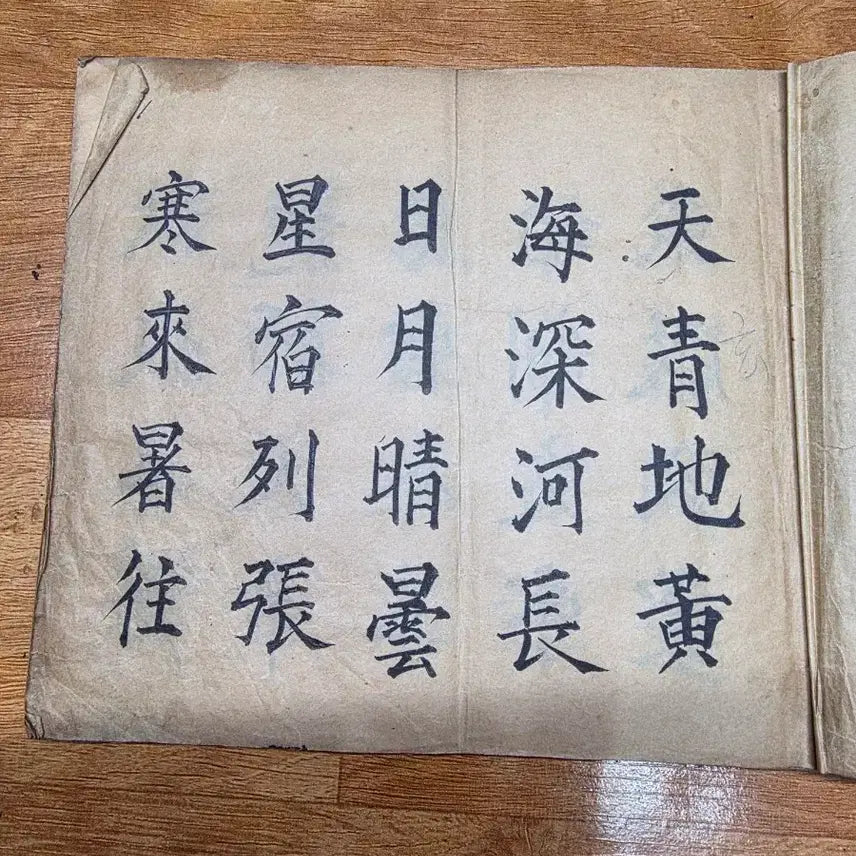 天青地黃
海深河長
日月晴曇
星宿列張
寒來暑往